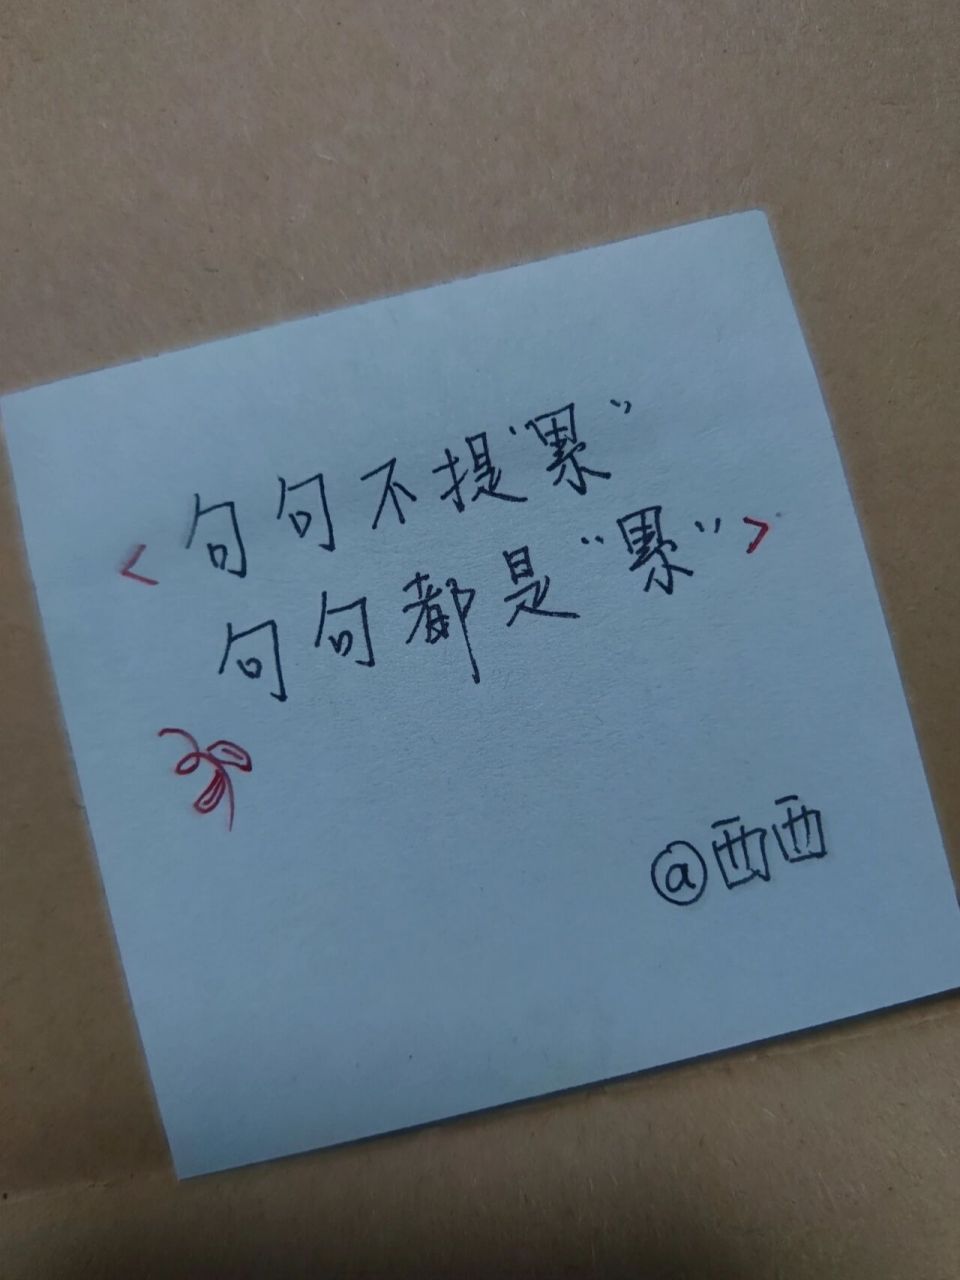 <句句不提"累"
句句都是"累">
@西西